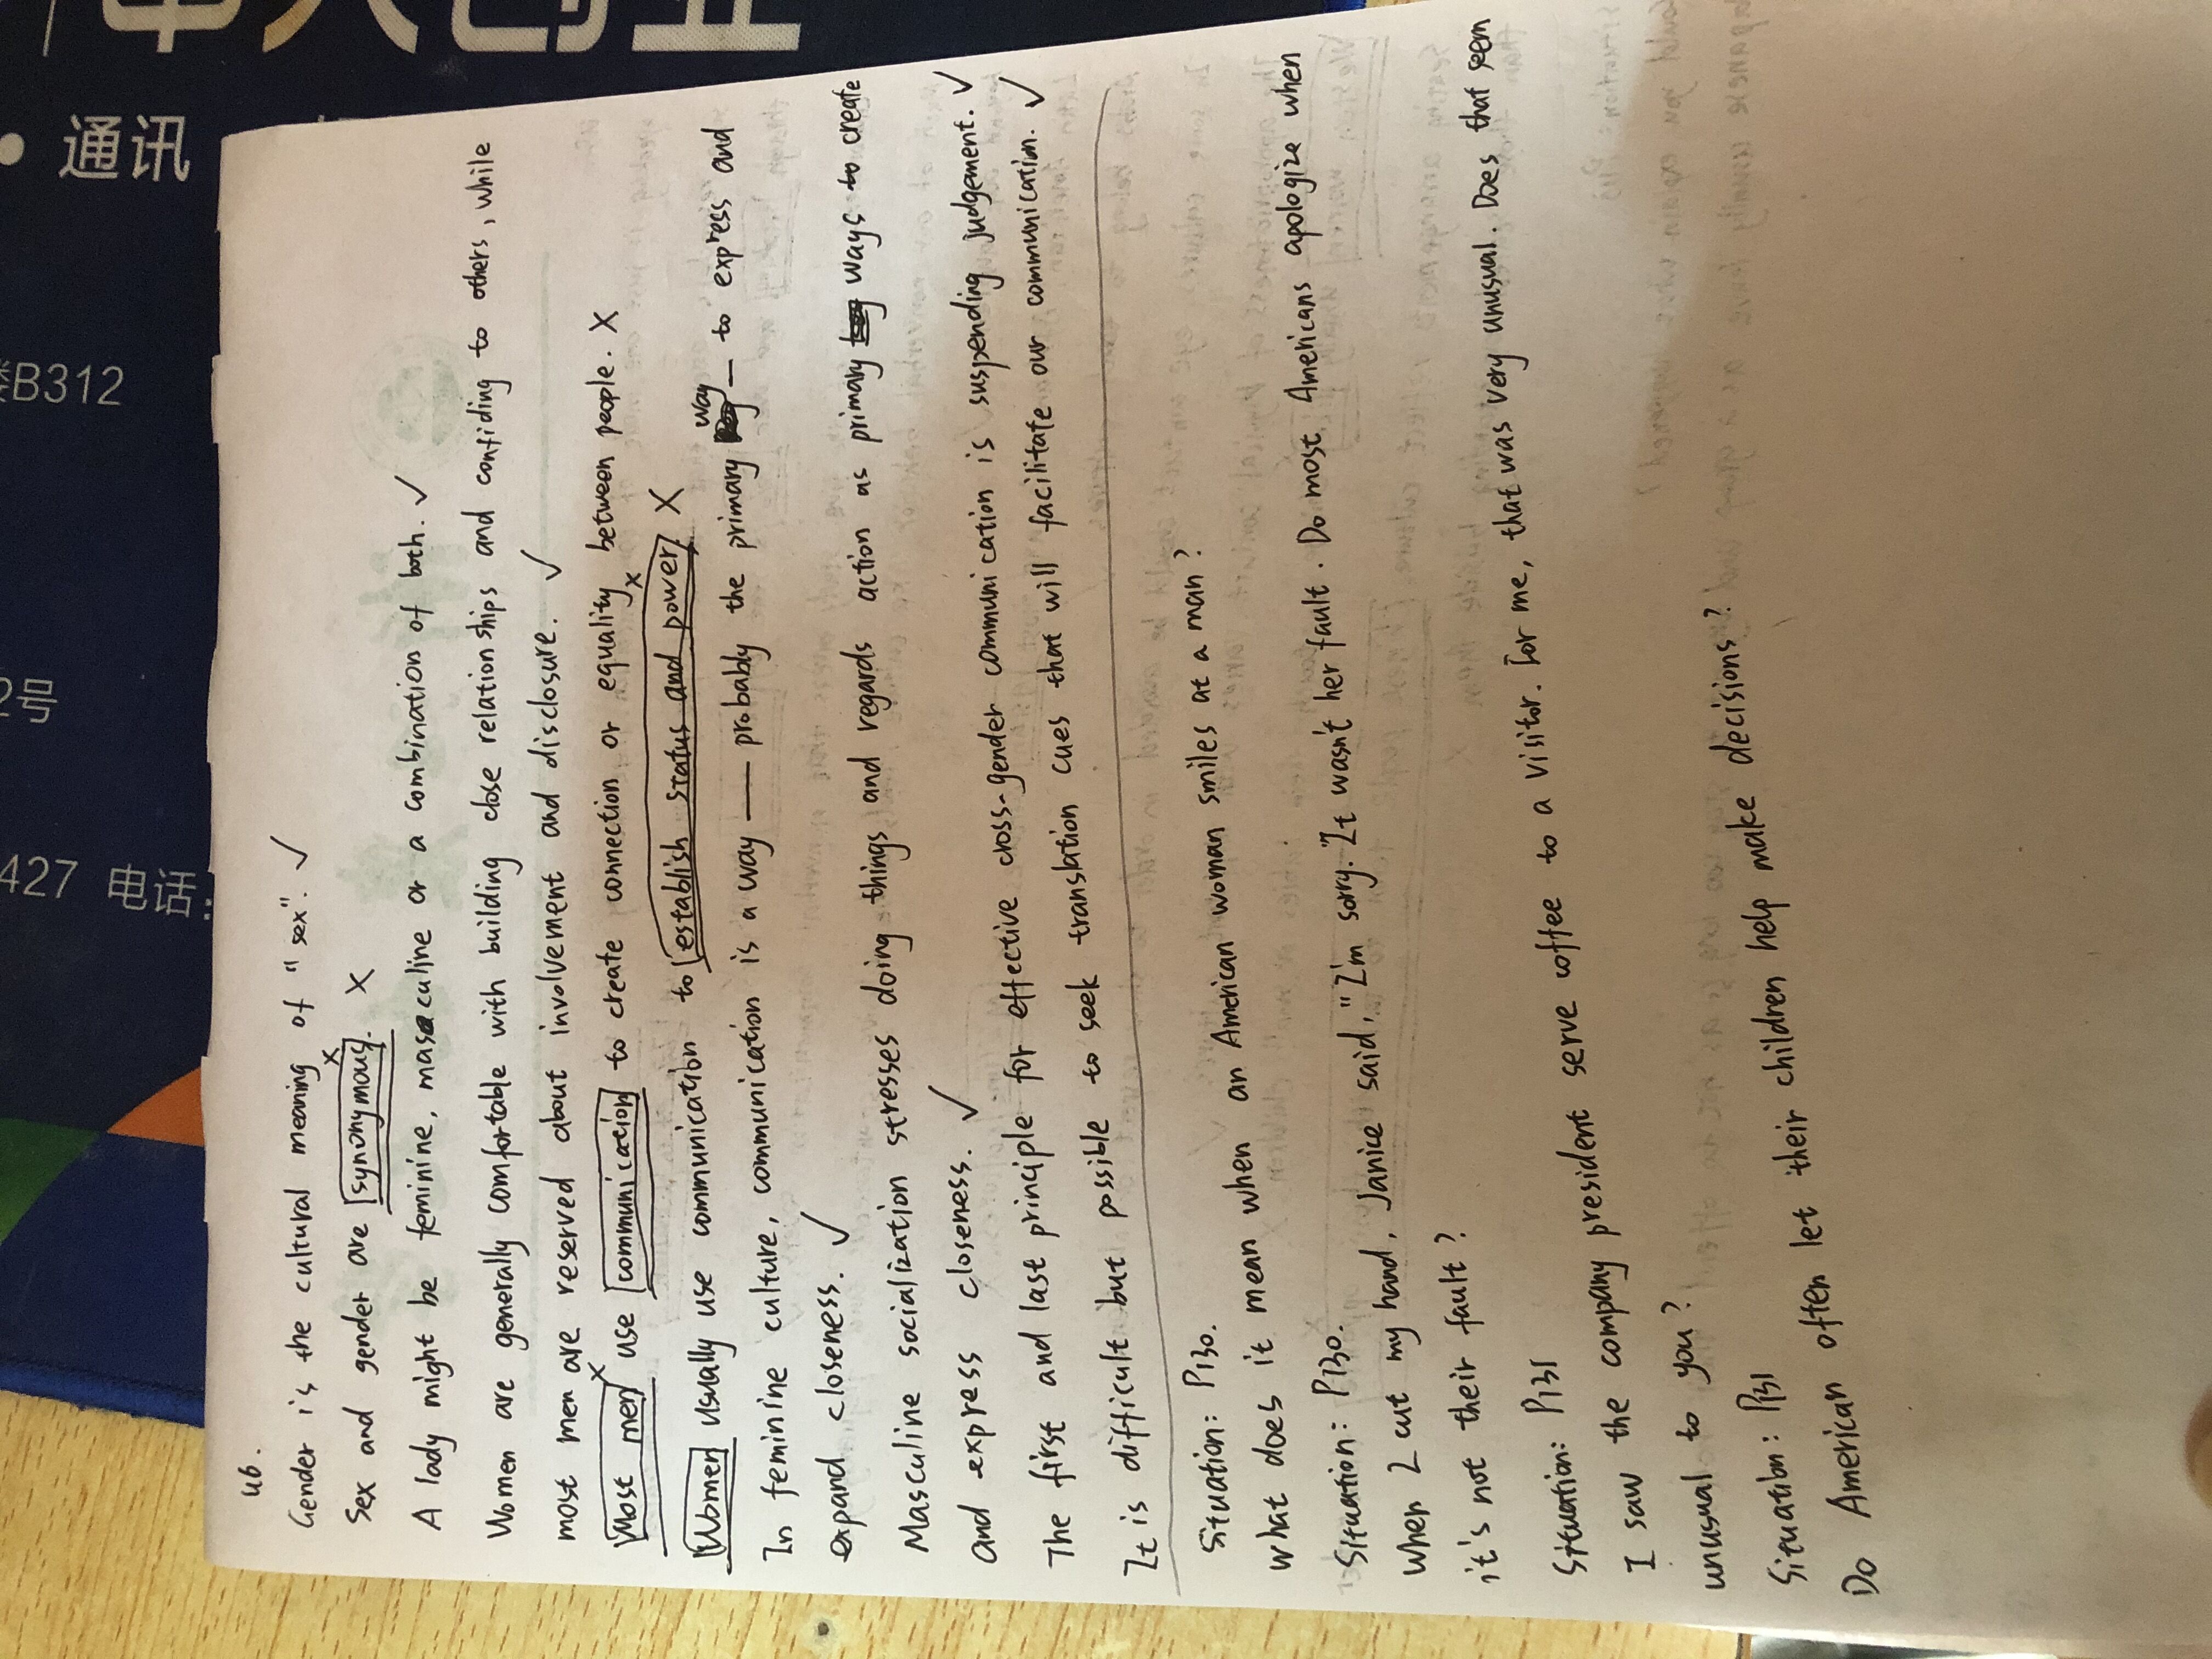 U6.
Gender is the cultural meaning of "sex". ✓
Sex and gender are synonymous. ×
A lady might be feminine, masculine or a combination of both. ✓
Women are generally comfortable with building close relationships and confiding to others, while
most men are reserved about involvement and disclosure. ✓
Most men use communication to create connection or equality between people. ×
Women usually use communication to establish status and power. ×
In feminine culture, communication is a way — probably the primary way to express and
expand closeness. ✓
Masculine socialization stresses doing things and regards action as primary ways to create
and express closeness. ✓
The first and last principle for effective cross-gender communication is suspending judgement. ✓
It is difficult but possible to seek translation cues that will facilitate our communication. ✓
Situation: P130.
What does it mean when an American woman smiles at a man?
Situation: P130.
When I cut my hand, Janice said, "I'm sorry." It wasn't her fault. Do most Americans apologize when
it's not their fault?
Situation: P131
I saw the company president serve coffee to a visitor. For me, that was very unusual. Does that seem
unusual to you?
Situation: P131
Do American often let their children help make decisions?
通讯
B312
2号
427 电话: